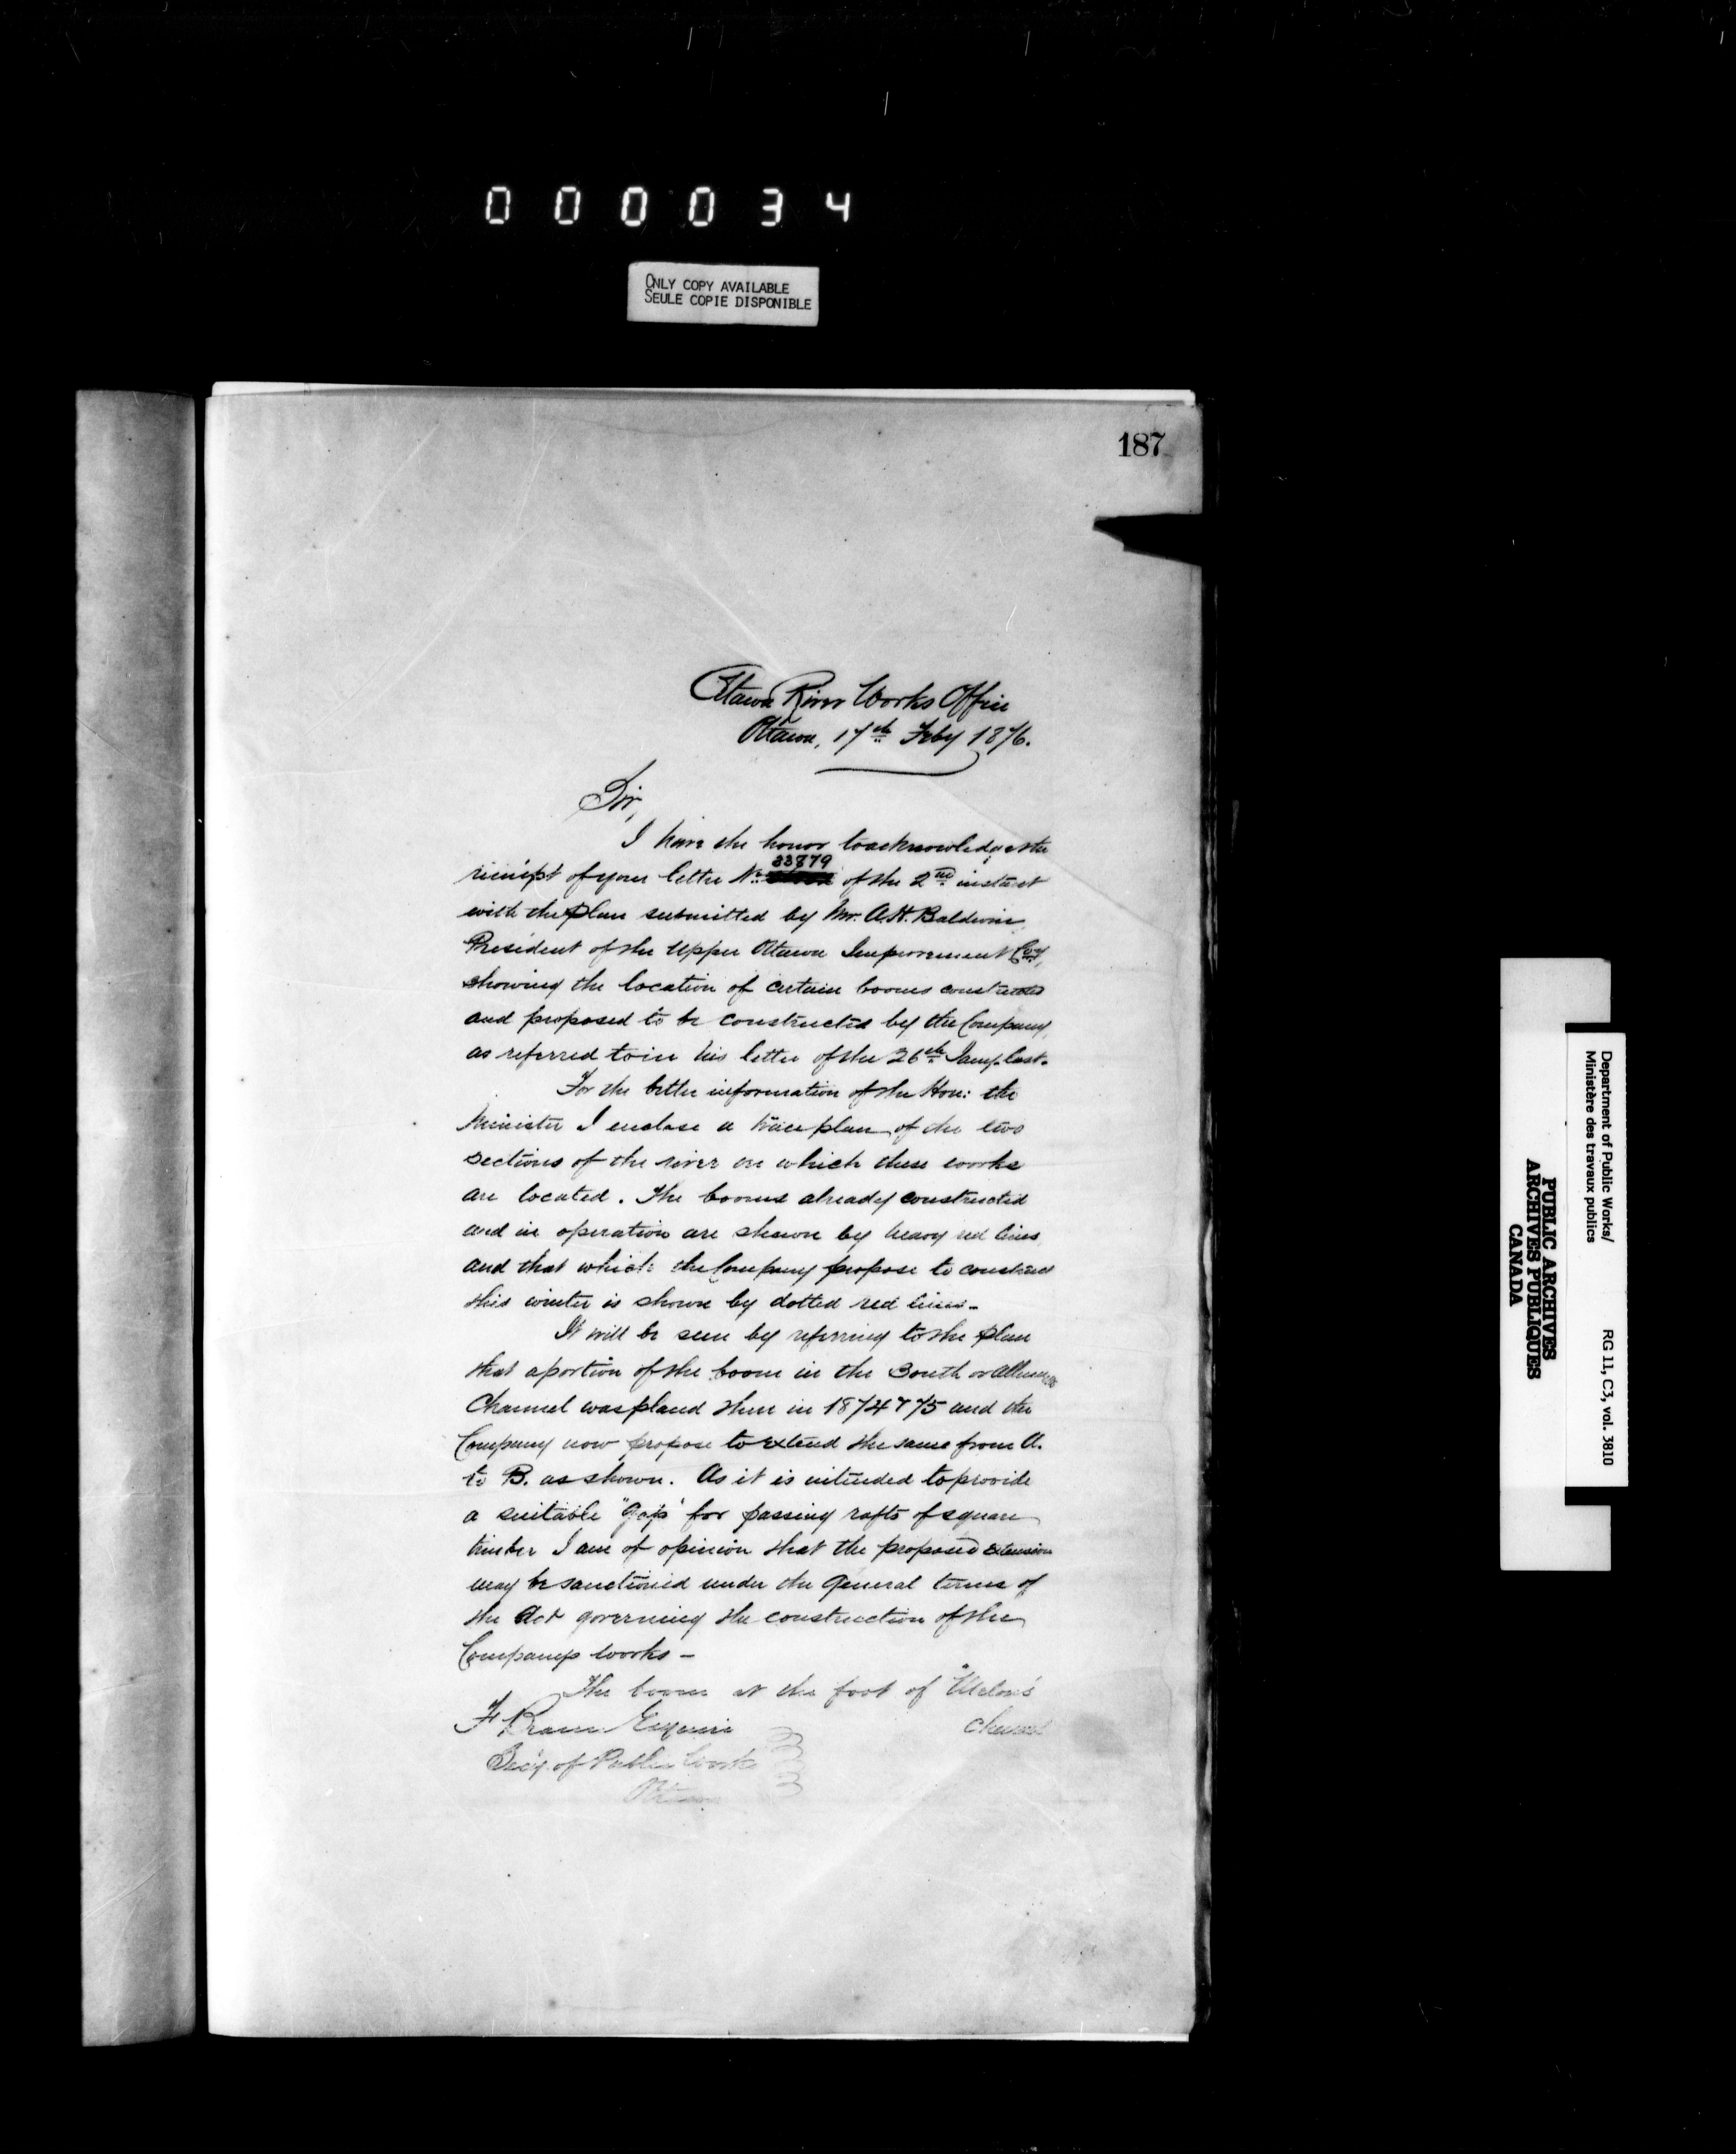 000034
ONLY COPY AVAILABLE
SEULE COPIE DISPONIBLE
187
Ottawa River Works Office
Ottawa, 17th Feby 1876.
Sir,
I have the honor to acknowledge the
receipt of your letter No. 33879 of the 2nd instant
with the plan submitted by Mr. A.H. Baldwin,
President of the Upper Ottawa Improvement Coy,
showing the location of certain booms constructed
and proposed to be constructed by the Company,
as referred to in his letter of the 26th Jany. last.
For the better information of the Hon: the
Minister I enclose a trace plan of the two
sections of the river on which these works
are located. The booms already constructed
and in operation are shewn by heavy red lines,
and that which the Company propose to construct
this winter is shown by dotted red lines -
It will be seen by referring to the plan
that a portion of the boom in the South or
Channel was placed there in 1874 & 75 and the
Company now propose to extend the same from A.
to B. as shown. As it is intended to provide
a suitable "Gap" for passing rafts of square
timber I am of opinion that the proposed extension
may be sanctioned under the general terms of
the Act governing the construction of the
Companys works -
The boom at the foot of
F Braun Esquire
Channel
Secy. of Public Works
Ottawa
Department of Public Works/
Ministère des travaux publics
RG 11, C3, vol. 3810
PUBLIC ARCHIVES
ARCHIVES PUBLIQUES
CANADA